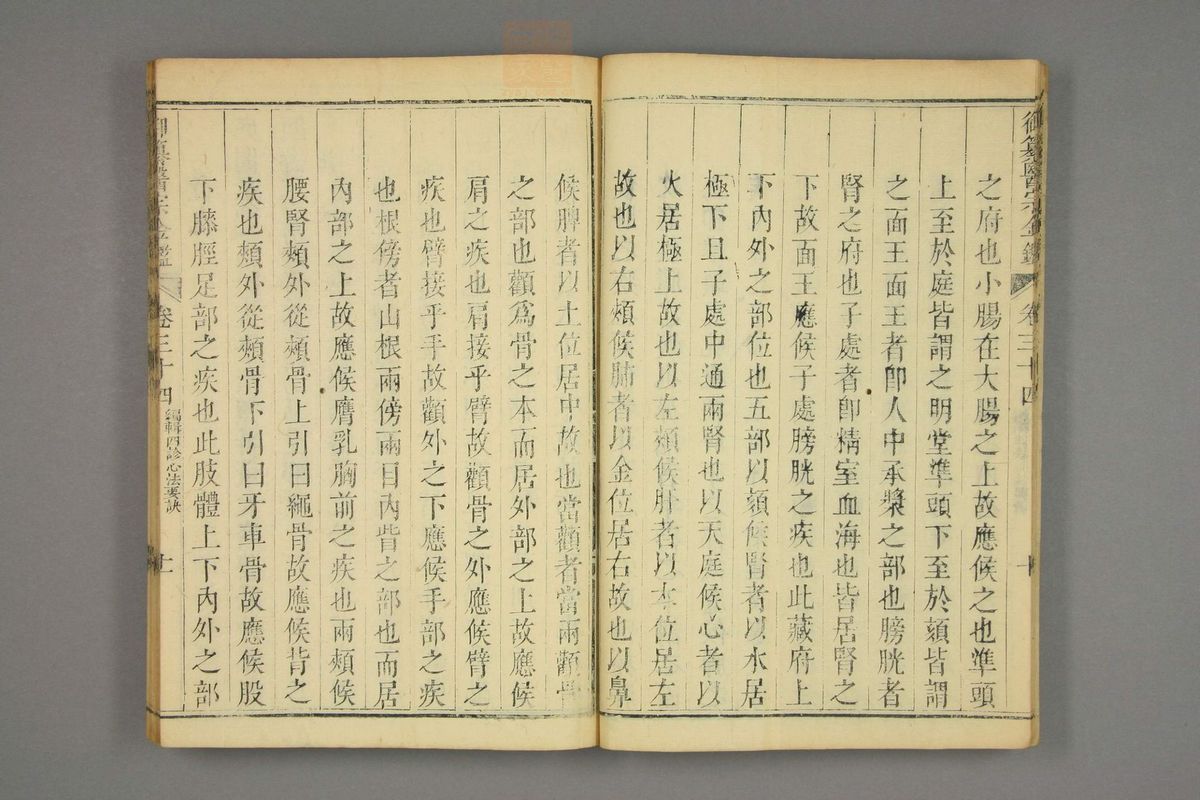 御纂醫宗金鑑 卷三十四 十
之府也小腸在大腸之上故應候之也準頭
上至於庭皆謂之明堂準頭下至於頦皆謂
之面王面王者卽人中承漿之部也膀胱者
腎之府也子處者卽精室血海也皆居腎之
下故面王應候子處膀胱之疾也此藏府上
下內外之部位也五部以頦候腎者以水居
極下且子處中通兩腎也以天庭候心者以
火居極上故也以左頰候肝者以木位居左
故也以右頰候肺者以金位居右故也以鼻
候脾者以土位居中故也當顴者當兩顴骨
之部也顴爲骨之本而居外部之上故應候
肩之疾也肩接乎臂故顴骨之外應候臂之
疾也臂接乎手故顴外之下應候手部之疾
也根傍者山根兩傍兩目內眥之部也而居
內部之上故應候膺乳胸前之疾也兩頰候
腰腎頰外從頰骨上引曰繩骨故應候背之
疾也頰外從頰骨下引曰牙車骨故應候股
下膝脛足部之疾也此肢體上下內外之部
御纂醫宗金鑑 卷三十四 編輯四診心法要訣 十一